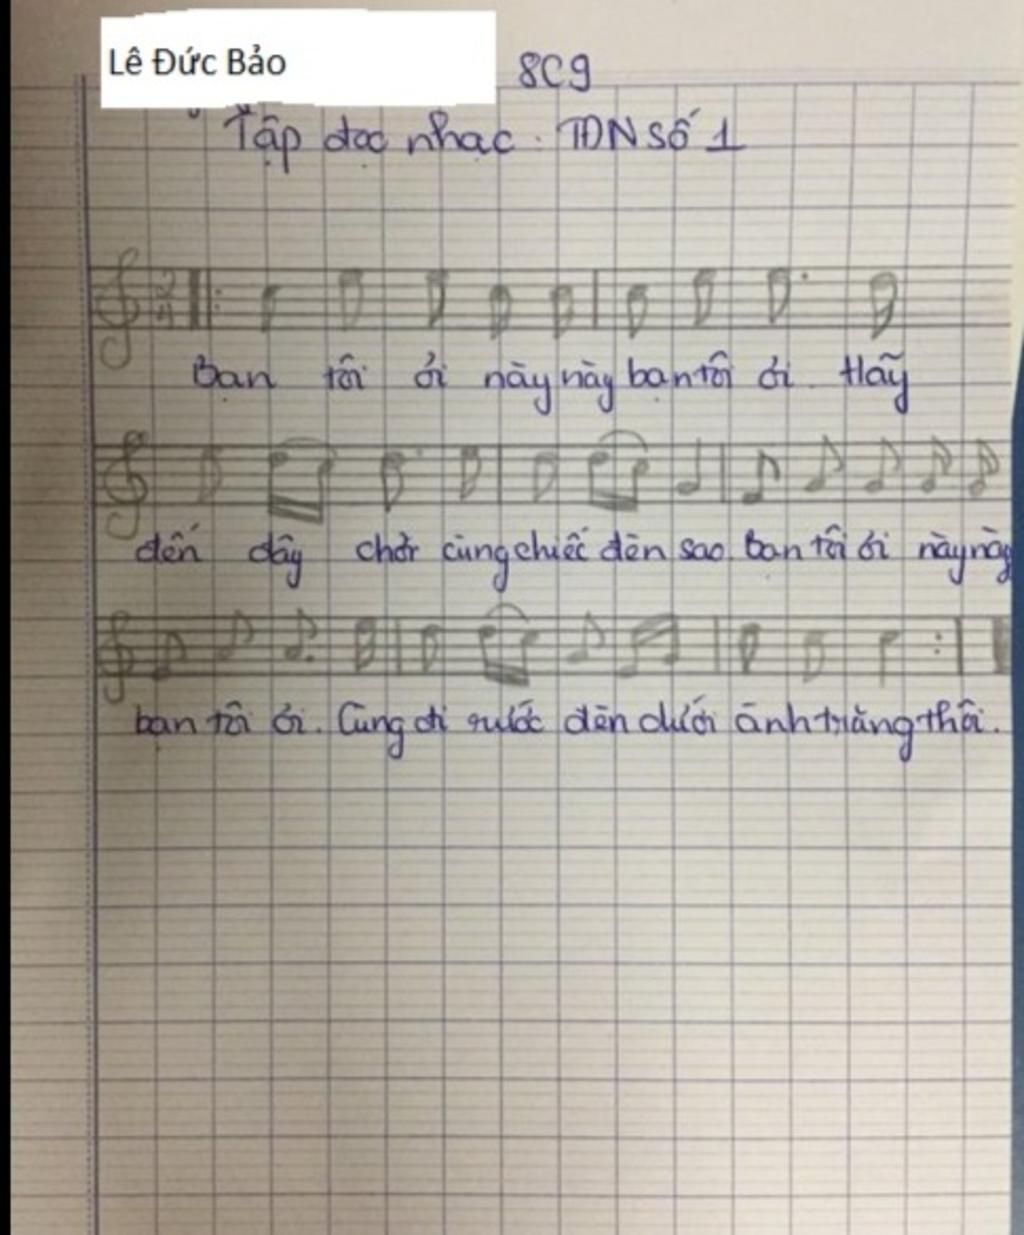 Lê Đức Bảo
8C9
Tập đọc nhạc. TĐN số 1
Bạn tôi ơi này này bạn tôi ơi. Hãy
đến đây chơi cùng chiếc đèn sao bạn tôi ơi này này
bạn tôi ơi. Cùng đi rước đèn dưới ánh trăng thôi.